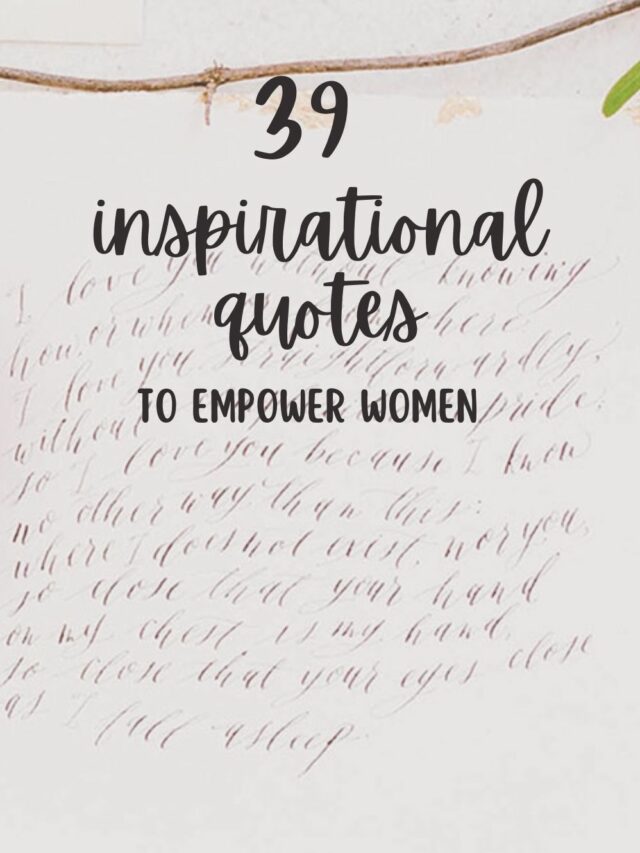 39
inspirational
quotes
TO EMPOWER WOMEN
I love you without knowing
how, or when
I love you straightforwardly,
without pride;
so I love you because I know
no other way than this:
where I does not exist, nor you,
so close that your hand
on my chest is my hand,
so close that your eyes close
as I fall asleep.